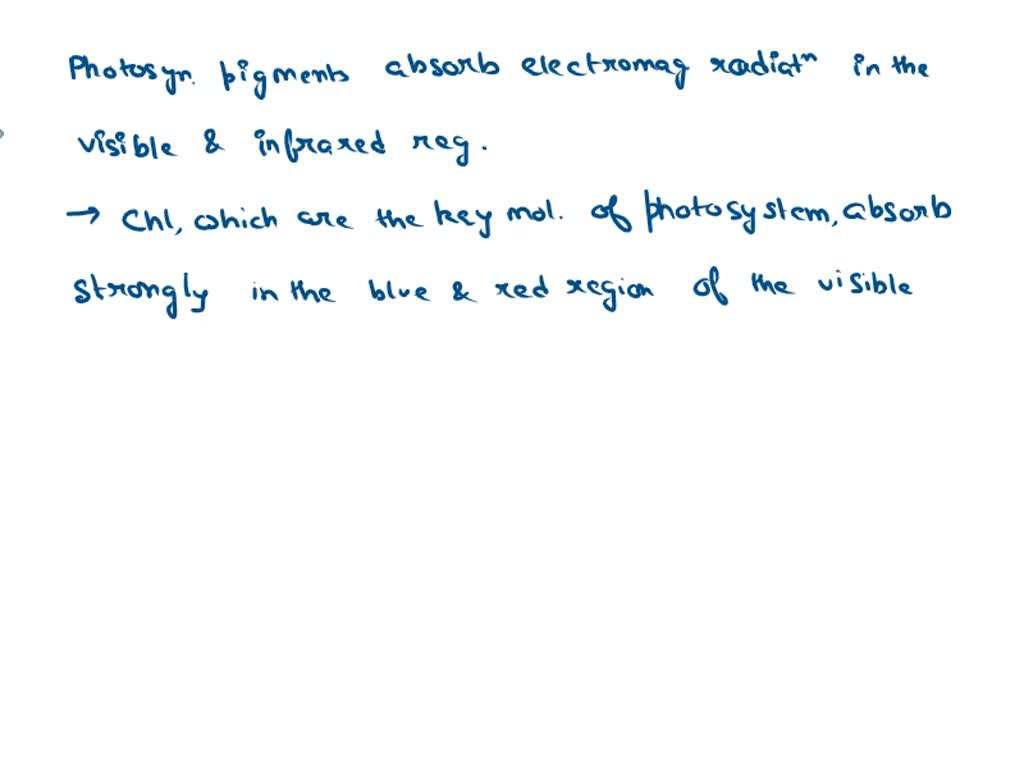 Photosyn. pigments absorb electromag radiatⁿ in the
visible & infrared reg.
→ Chl, which are the key mol. of photosystem, absorb
strongly in the blue & red region of the visible